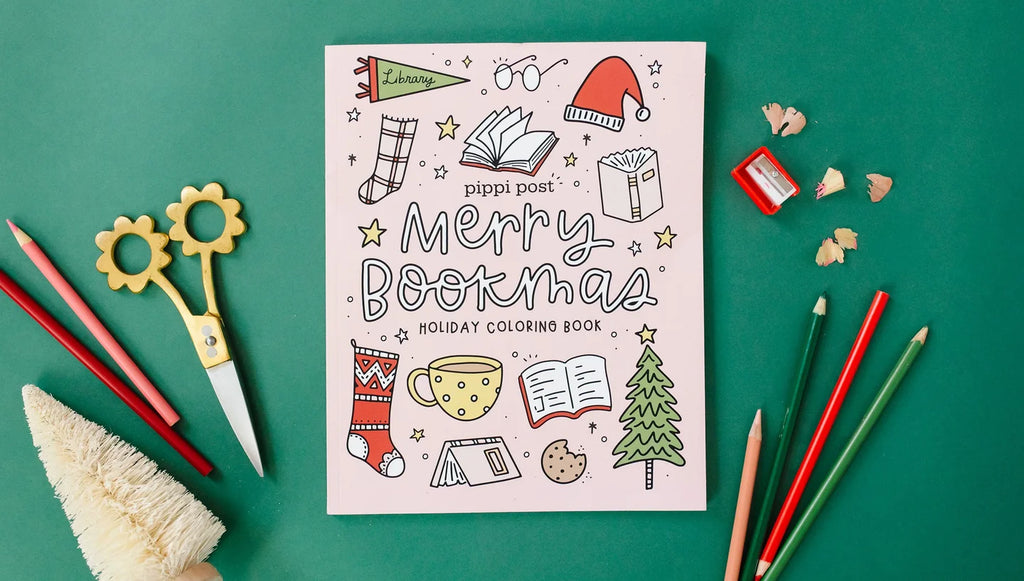 Library
pippi post
Merry
Bookmas
HOLIDAY COLORING BOOK